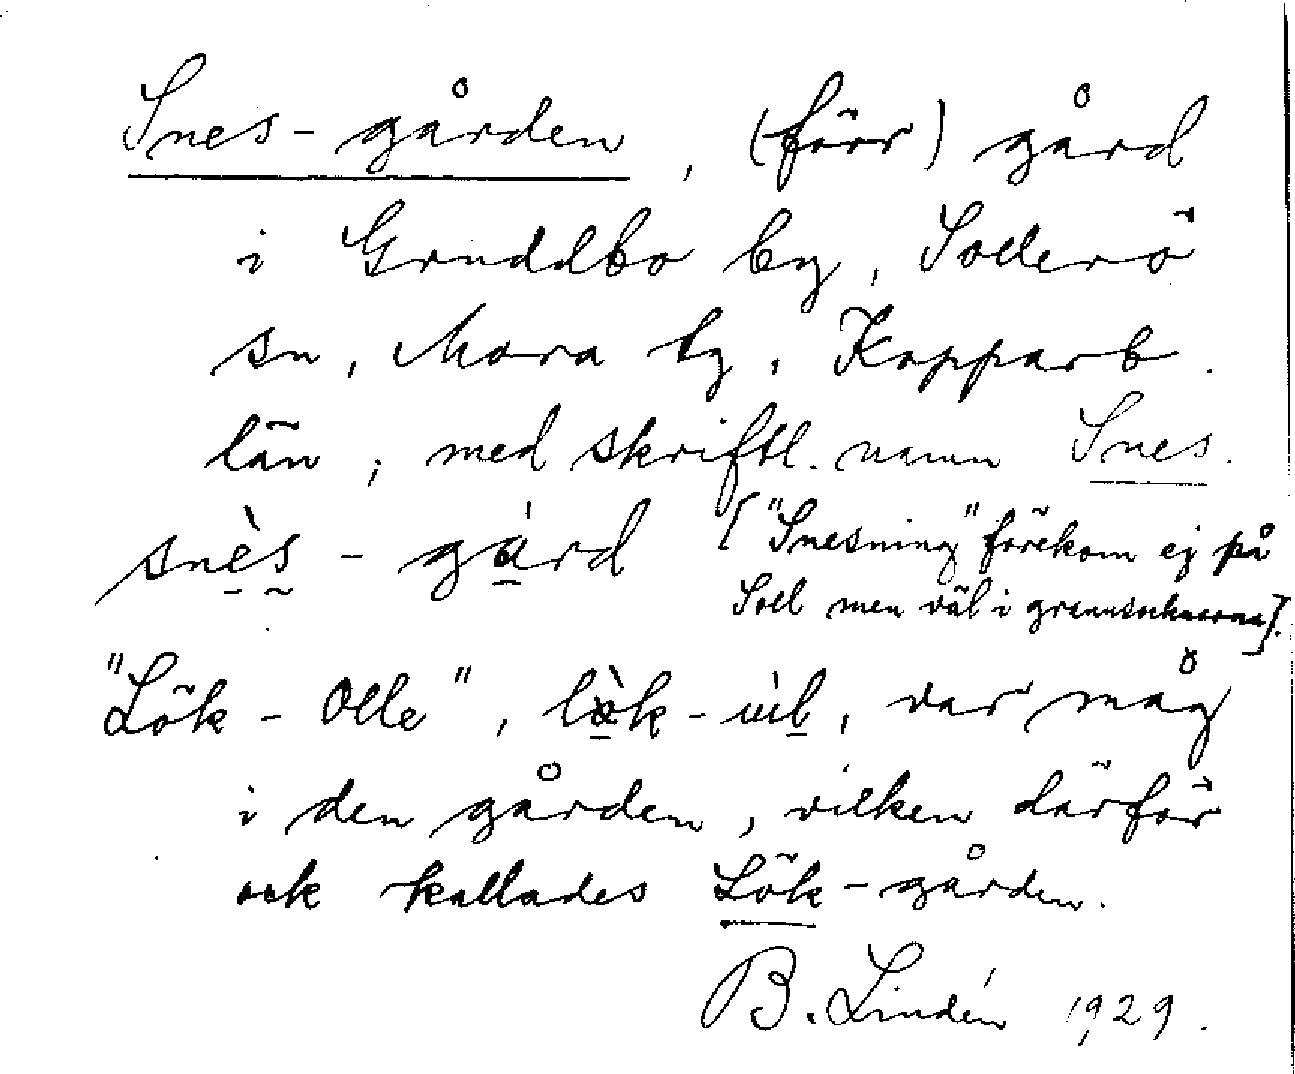 Snes-gården, (förr) gård
i Gruddbo by, Sollerö
sn, Mora tg, Kopparb.
län; med skriftl. namn Snes.
snès-gárd ["Snesning" förekom ej på
Soll men väl i grannsocknarna].
"Lök-Olle", lòk-ùl, var måg
i den gården, vilken därför
ock kallades Lök-gården.
B. Lindén 1929.